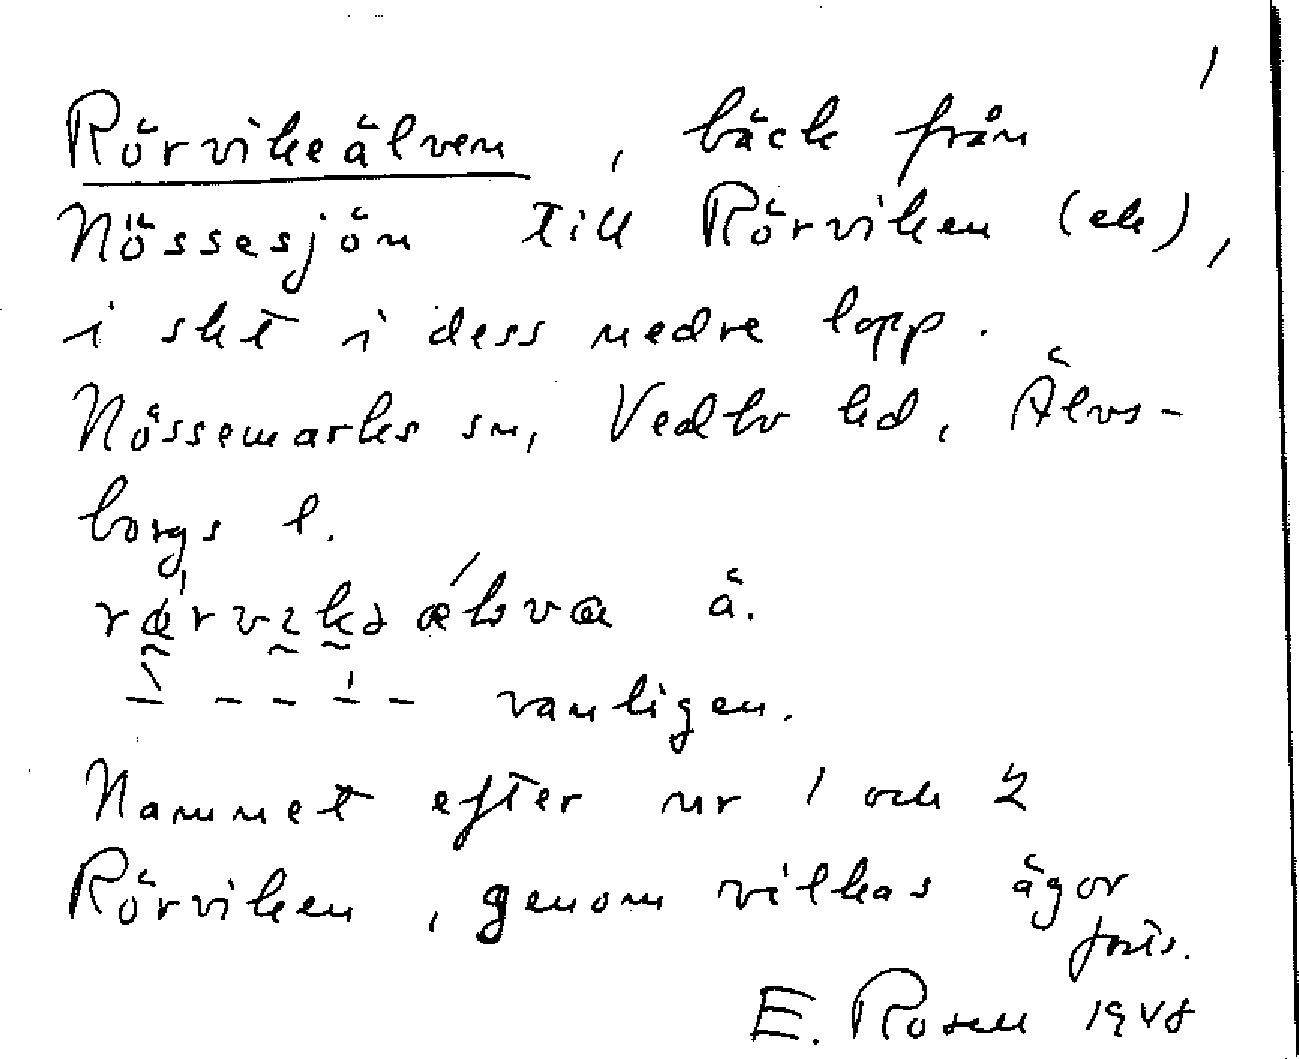 1
Rörvikeälven, bäck från
Nössesjön till Rörviken (ek),
i skt i dess nedre lopp.
Nössemarks sn, Vedbo hd, Älvs-
borgs l.
ä.
vanligen.
Namnet efter nr 1 och 2
Rörviken, genom vilkas ägor
forts.
E. Rosell 1948